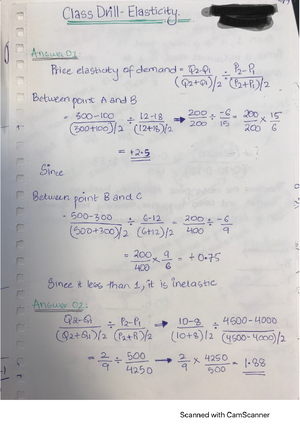 Class Drill - Elasticity.
Answer 01
Price elasticity of demand = Q2-Q1/(Q2+Q1)/2 ÷ P2-P1/(P2+P1)/2
Between point A and B
= 300-100/(300+100)/2 ÷ 12-18/(12+18)/2 → 200/200 ÷ -6/15 = 200/200 × 15/6
= +2.5
Since
Between point B and C
= 500-300/(500+300)/2 ÷ 6-12/(6+12)/2 = 200/400 ÷ -6/9
= 200/400 × 9/6 = +0.75
Since it less than 1, it is inelastic
Answer 02:
Q2-Q1/(Q2+Q1)/2 ÷ P2-P1/(P2+P1)/2 → 10-8/(10+8)/2 ÷ 4500-4000/(4500-4000)/2
= 2/9 ÷ 500/4250 → 2/9 × 4250/500 = 1.88
Scanned with CamScanner